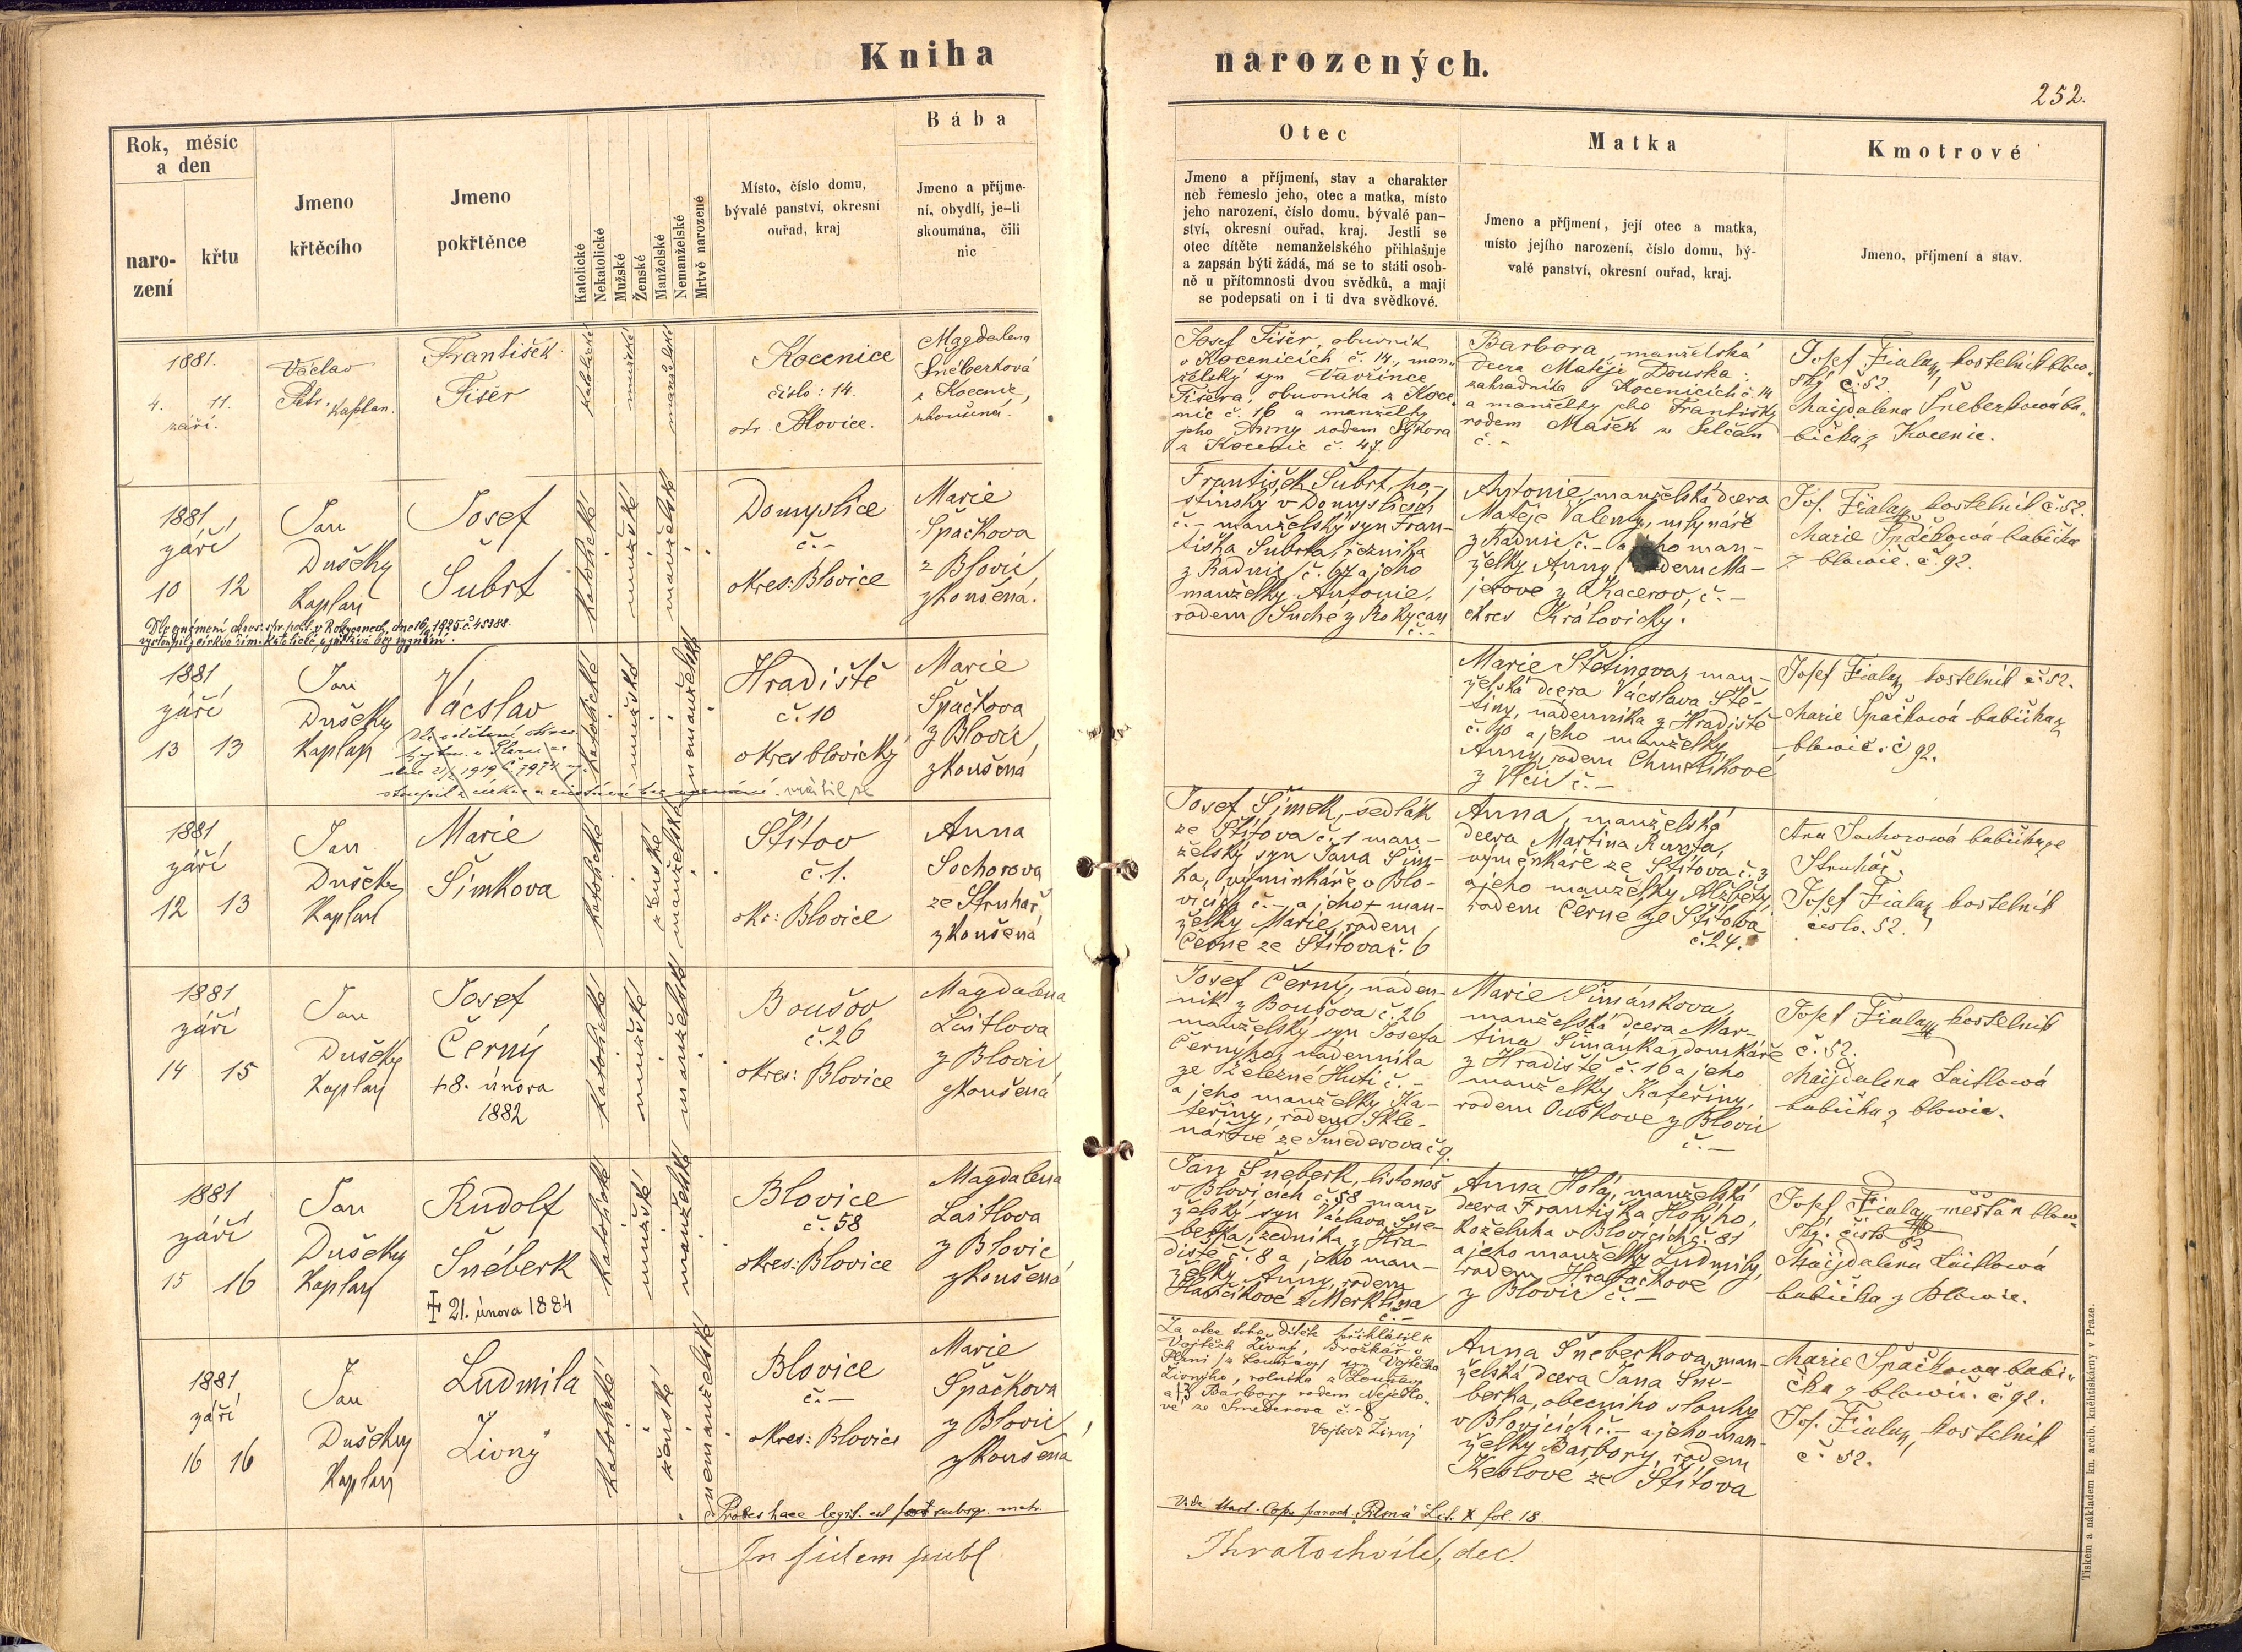 Kniha
narozených.
252.
Rok, měsíc
a den
naro-
zení
křtu
Jmeno
křtěcího
Jmeno
pokřtěnce
Katolické
Nekatolické
Mužské
Ženské
Manželské
Nemanželské
Mrtvě narozené
Místo, číslo domu,
bývalé panství, okresní
ouřad, kraj
Bába
Jmeno a příjme-
ní, obydlí, je-li
skoumána, čili
nic
Otec
Jmeno a příjmení, stav a charakter
neb řemeslo jeho, otec a matka, místo
jeho narození, číslo domu, bývalé pan-
ství, okresní ouřad, kraj. Jestli se
otec dítěte nemanželského přihlašuje
a zapsán býti žádá, má se to státi osob-
ně u přítomnosti dvou svědků, a mají
se podepsati on i ti dva svědkové.
Matka
Jmeno a příjmení, její otec a matka,
místo jejího narození, číslo domu, bý-
valé panství, okresní ouřad, kraj.
Kmotrové
Jmeno, příjmení a stav.
1881.
4. 11.
září.
Václav
Petr, kaplan.
František
Fišer
katolické
mužské
manželské
Kocenice
číslo: 14.
okr. Blovice.
Magdalena
Šnéberková
z Kocenic,
zkoušená.
Josef Fišer, obuvník
v Kocenicích č. 14., man-
želský syn Vavřince
Fišera, obuvníka z Koce-
nic č. 16 a manželky
jeho Anny rodem Sýkora
z Kocenic č. 47.
Barbora, manželská
dcera Matěje Douska
zahradníka v Kocenicích č. 14
a manželky jeho Františky
rodem Mašek z Selčan
č. -
Josef Fiala, kostelník blow-
ský č. 52
Maijdalena Šneberkowá ba-
bička z Kocenic.
1881
září
10 12
Jan
Dušek
Kaplan
Josef
Šubrt
Katolické
mužské
manželské
Domyslice
č. -
okres: Blovice
Marie
Špačkova
z Blovic
zkoušená.
František Šubrt, ho-
stinský v Domyslicích
č. - manželský syn Fran-
tiška Šubrta, řezníka
z Radnic č. 67 a jeho
manželky Antonie,
rodem Suché z Rokycan
č. -
Antonie, manželská dcera
Matěje Valenty, mlynáře
z Radnic č. - a jeho man-
želky Anny, rodem Ma-
jerové z Kacerov, č. -
okres Královický.
Jos. Fiala, kostelník č. 52.
Marie Špačkowá babička
z blowic. č. 92.
Dle oznámení okres. spr. pol. v Rokycanech, dne 16/ 1925 č. 45388
vystoupil z církve řím. katolické a zůstává bez vyznání.
1881
září
13 13
Jan
Dušek
Kaplan
Václav
Katolické
mužské
nemanželské
Hradiště
č. 10
okres blovický
Marie
Špačkova
z Blovic
zkoušená
Marie Štětinova, man-
želská dcera Václava Ště-
tiny, nádenníka z Hradiště
č. 10 a jeho manželky
Anny, rodem Chmelíkové
z Vlčic č. -
Josef Fiala, kostelník č. 52.
Marie Špačkowá babička z
blowic. č 92.
1881
září
12 13
Jan
Dušek
Kaplan
Marie
Šimkova
Katolické
ženské
manželské
Štítov
č. 1.
okr: Blovice
Anna
Sochorova
ze Struhař
zkoušená
Josef Šimek, sedlák
ze Štítova č. 1 man-
želský syn Jana Šim-
ka, výminkáře v Blo-
vicích č. - a jeho man-
želky Marie, rodem
Černé ze Štítova č. 6
Anna, manželská
dcera Martina Runta,
výměnkáře ze Štítova č. 3
a jeho manželky Alžběty,
rodem Černe ze Štítova
č. 24.
Ana Sochorowá babička ze
Struhař
Josef Fiala, kostelník
číslo. 52.
1881
září
14 15
Jan
Dušek
Kaplan
Josef
Černý
+ 8. února
1882
Katolické
mužské
manželské
Boušov
č. 26
okres: Blovice
Magdalena
Laitlova
z Blovic
zkoušená
Josef Černý, náden-
ník z Boušova č. 26
manželský syn Josefa
Černýho, nádenníka
ze Železné Huti č. -
a jeho manželky Ka-
teřiny, rodem Skle-
nářové ze Smederova č 9.
Marie Šimánkova,
manželská dcera Mar-
tina Šimánka, domkáře
z Hradiště č. 16 a jeho
manželky Kateřiny,
rodem Ouskove z Blovic
č. -
Josef Fiala, kostelník
č. 52.
Maijdalena Laitlowá
babička z blowic.
1881
září
15 16
Jan
Dušek
Kaplan
Rudolf
Šnéberk
† 21. února 1884
Katolické
mužské
manželské
Blovice
č. 58
okres: Blovice
Magdalena
Laitlova
z Blovic
zkoušená
Jan Šneberk, listonoš
v Blovicích č. 58 man-
želský syn Václava Šne-
berka, zedníka z Hra-
diště č. 8 a jeho man-
želky Anny, rodem
Havlíkové z Merklína
č. -
Anna Holá, manželská
dcera Františka Holýho,
koželuha v Blovicích č. 81
a jeho manželky Ludmily,
rodem Hrabačkové
z Blovic č. -
Josef Fiala, měšťan blow-
ský. číslo 52
Maijdalena Laitlowá
babička z Blowic.
1881
září
16 16
Jan
Dušek
Kaplan
Ludmila
Živný
Katolické
ženské
nemanželské
Blovice
č. -
okres: Blovice
Marie
Špačkova
z Blovic
zkoušená
Za otce toho dítěte přihlásil se
Vojtěch Živný,
Živnýho, rolníka z Louňav
a Barbory rodem Nejedlo-
vé ze Smederova č. 8
Vojtěch Živný
Anna Šneberkova, man-
želská dcera Jana Šne-
berka, obecního slouhy
v Blovicích č. - a jeho man-
želky Barbory, rodem
Keslové ze Štítova
Marie Špačkowa babi-
čka z blowic. č 92.
Jos. Fiala, kostelník
č. 52.
Proles haec legit. est per subseq. matr.
Vide Matr. Cop. paroch. Pilsna Lit. X fol. 18.
In fidem publ
Jkratochvíle, dec.
Tiskem a nákladem kn. arcib. knihtiskárny v Praze.